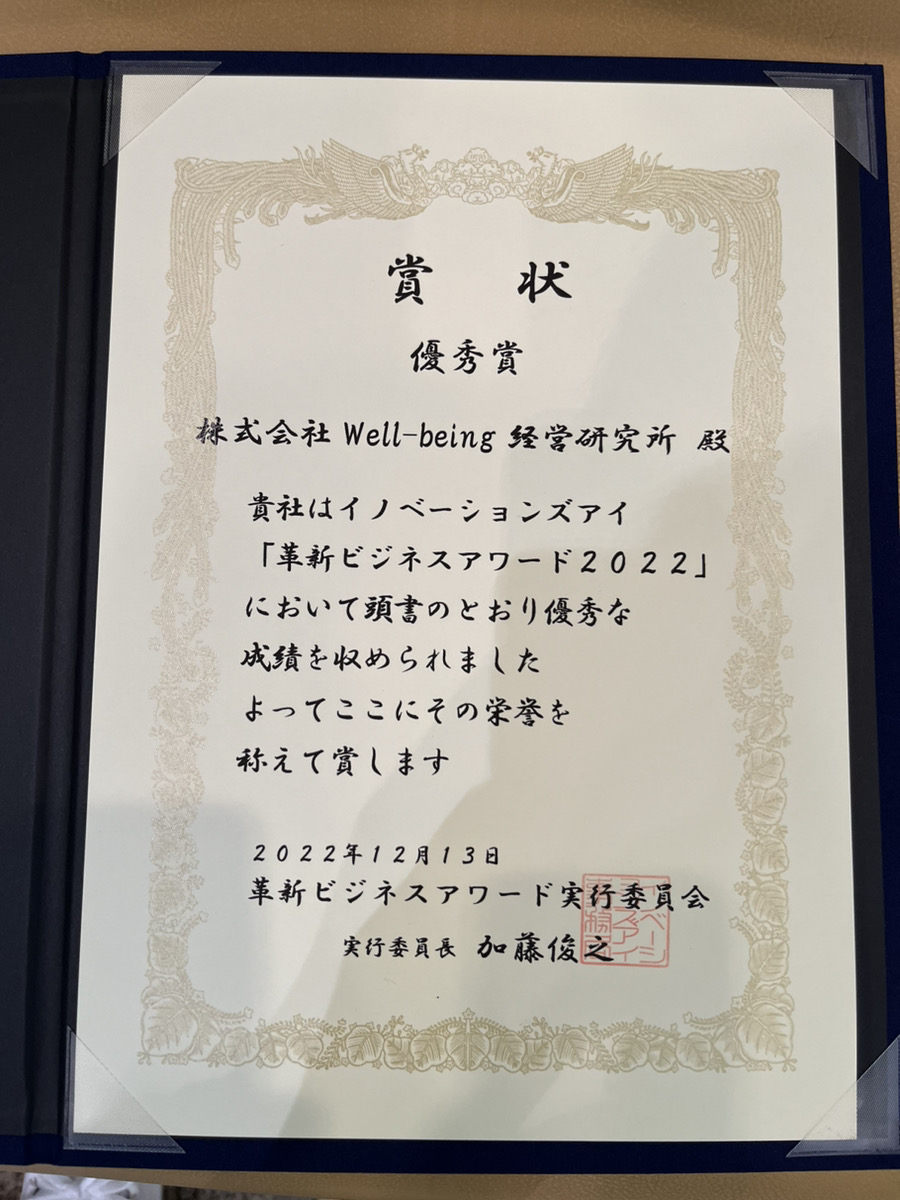 賞 状
優秀賞
株式会社 Well-being 経営研究所 殿
貴社はイノベーションズアイ
「革新ビジネスアワード２０２２」
において頭書のとおり優秀な
成績を収められました
よってここにその栄誉を
称えて賞します
２０２２年１２月１３日
革新ビジネスアワード実行委員会
実行委員長 加藤俊之